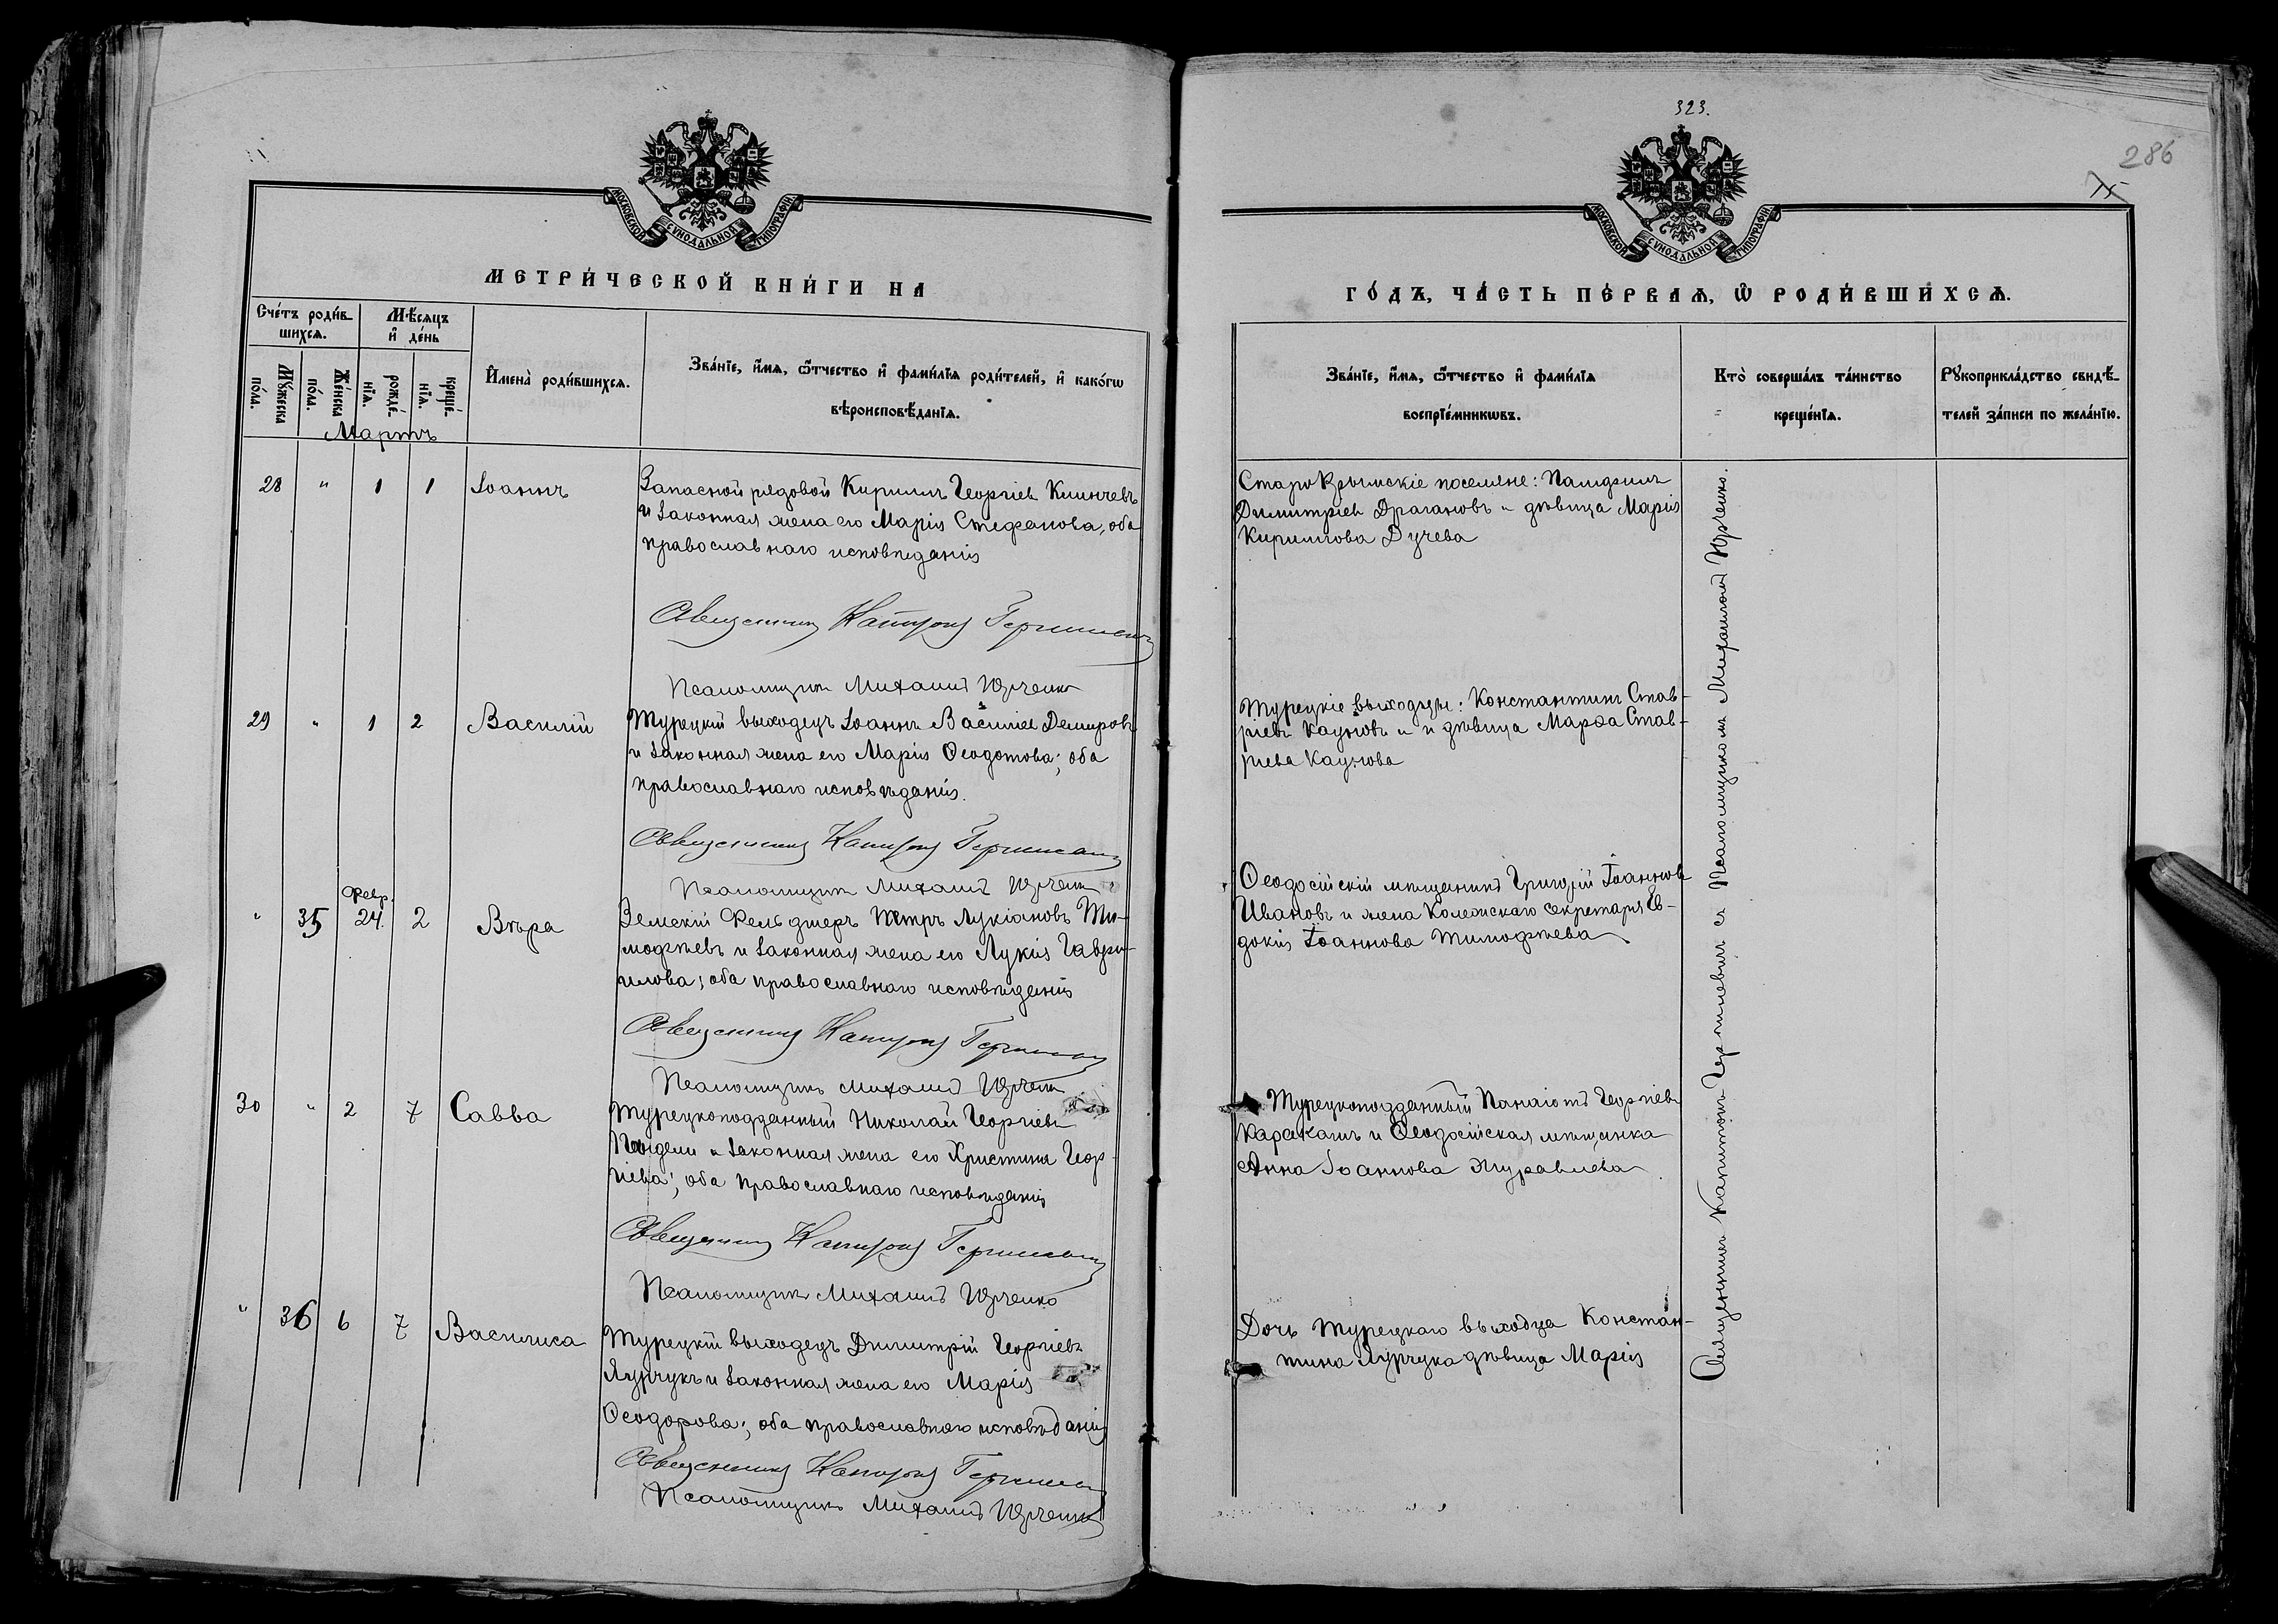 МОСКОВСКОЙ СѴНОДАЛЬНОЙ ТИПОГРАФІИ
МЕТРИ́ЧЕСКОЙ КНИ́ГИ НА
Сче́тъ роди́в-
шихсѧ.
Мѣ́сѧцъ
и҆ де́нь
Мꙋ́жеска
по́ла.
Же́нска
по́ла.
рожде́-
нїѧ.
креще́-
нїѧ.
И҆мена̀ роди́вшихсѧ.
Зва́нїе, и҆́мѧ, ѻ҆́тчество и҆ фами́лїѧ роди́телей, и҆ како́гѡ
вѣроисповѣ́данїѧ.
Мартъ
28 " 1 1 Іоаннъ
Запасной рядовой Кириллъ Георгіев
и законная жена его Марія Стефанова, оба
православнаго исповѣданія
Священникъ Капитонъ Гермилевичъ
Псаломщикъ Михаилъ Юрченко
29 " 1 2 Василій
Турецкій выходецъ Іоаннъ Василіев Демировъ
и законная жена его Марія Ѳеодотова; оба
православнаго исповѣданія.
Священникъ Капитонъ Гермилевичъ
Псаломщикъ Михаилъ Юрченко
" 35 Февр. 24. 2 Вѣра
Земскій Фельдшеръ Петръ Лукіановъ Ти-
мофѣевъ и законная жена его Лукія Гаври-
илова; оба православнаго исповѣданія
Священникъ Капитонъ Гермилевичъ
Псаломщикъ Михаилъ Юрченко
30 " 2 7 Савва
Турецкоподданный Николай Георгіевъ
и законная жена его Христина Геор-
гіева; оба православнаго исповѣданія
Священникъ Капитонъ Гермилевичъ
Псаломщикъ Михаилъ Юрченко
" 36 6 7 Василиса
Турецкій выходецъ Димитрій Георгіевъ
Лурчукъ и законная жена его Марія
Ѳеодорова; оба православнаго исповѣданія
Священникъ Капитонъ Гермилевичъ
Псаломщикъ Михаилъ Юрченко
323.
286
75
МОСКОВСКОЙ СѴНОДАЛЬНОЙ ТИПОГРАФІИ
ГО́ДЪ, ЧА́СТЬ ПЕ́РВАѦ, Ѡ҆ РОДИ́ВШИХСѦ.
Зва́нїе, и҆́мѧ, ѻ҆́тчество и҆ фами́лїѧ
воспрїе́мникѡвъ.
Кто̀ соверша́лъ та́инство
креще́нїѧ.
Рꙋкоприкла́дство свидѣ́-
телей за́писи по жела́нїю.
СтароКрымскіе поселяне: Памфилъ
Димитріев Драгановъ и дѣвица Марія
Кириллова Дучева
Турецкіе выходцы: Константинъ Став-
ріевъ Каузовъ и и дѣвица Марфа Став-
ріева Каузова
Ѳеодосійскій мѣщанинъ Григорій Іоанновъ
Ивановъ и жена Колежскаго секретаря Ев-
докія Іоаннова Тимофѣева
Турецкоподданный Панаіотъ Георгіевъ
Каракашъ и Ѳеодосійская мѣщанка
Анна Іоаннова Журавлева
Дочь Турецкаго выходца Констан-
тина Лурчука дѣвица Марія
Священникъ Капитонъ Гермилевичъ съ Псаломщикомъ Михаиломъ Юрченко.